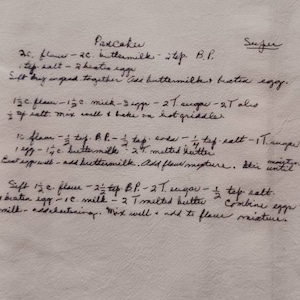 Pancakes Super
2c. flour - 2c. buttermilk - 2 tsp B.P.
1 tsp. salt - 2 beaten eggs
Sift dry ingred together Add buttermilk & beaten eggs.
1½ c. flour - 1½ c. milk - 3 eggs - 2 T. sugar - 2 T oleo
½ tsp salt mix well & bake on hot griddle
1c flour - ½ tsp B.P. - ½ tsp. soda - ¼ tsp. salt - 1 T. sugar
1 egg - 1¼ c. buttermilk - 2 T melted butter
Beat egg well - add buttermilk. Add flour mixture. Stir until moisture
Sift 1½ c. flour - 2½ tsp B.P. - 2 T. sugar - ½ tsp salt
1 beaten egg - 1 c. milk - 2 T melted butter Combine eggs
milk - add shortening. Mix well & add to flour mixture.